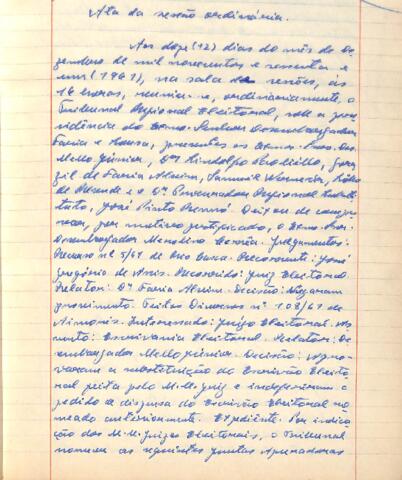 Ata da sessão ordinária.
Aos doze (12) dias do mês de de
zembro de mil novecentos e sessenta e
um (1961), na sala de sessões, às
16 horas, reuniu-se, ordinariamente, o
Tribunal Regional Eleitoral, sob a pre
sidência do Exmo. Senhor Desembargador
Faria e Sousa, presentes os Exmos. Srs. Des.
Mello Júnior, Drs. Lindolfo
de Faria Alvim,
de Resende e o Dr. Procurador Regional Substi
tuto, José Pinto Deixou de compa
recer, por motivo justificado, o Exmo. Snr.
Desembargador Correia. Julgamentos:
Recurso nº 5/61 de Recorrente: José
Gregório de Assis. Recorrido: Juiz Eleitoral.
Relator: Dr. Faria Alvim. Decisão: Negaram
provimento. Feitos Diversos nº 108/61 de
Aimorés. Interessado: Juízo Eleitoral. As
sunto: Escrivania Eleitoral. Relator: De
sembargador Mello Júnior. Decisão: Apro-
varam a substituição do Escrivão Eleito
ral feita pelo M.M. Juiz e indeferiram o
pedido de dispensa do Escrivão Eleitoral no
meado anteriormente. Expediente. Por indica
ção dos M.M. Juizes Eleitorais, o Tribunal
nomeou as seguintes Juntas Apuradoras